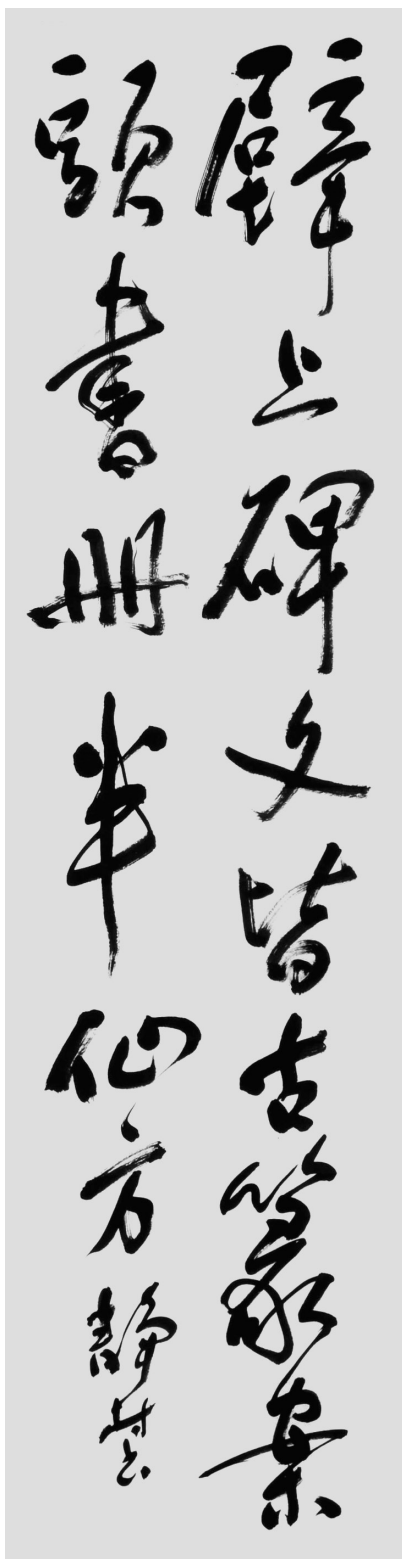 壁上碑文皆古篆案
頭書冊半仙方靜